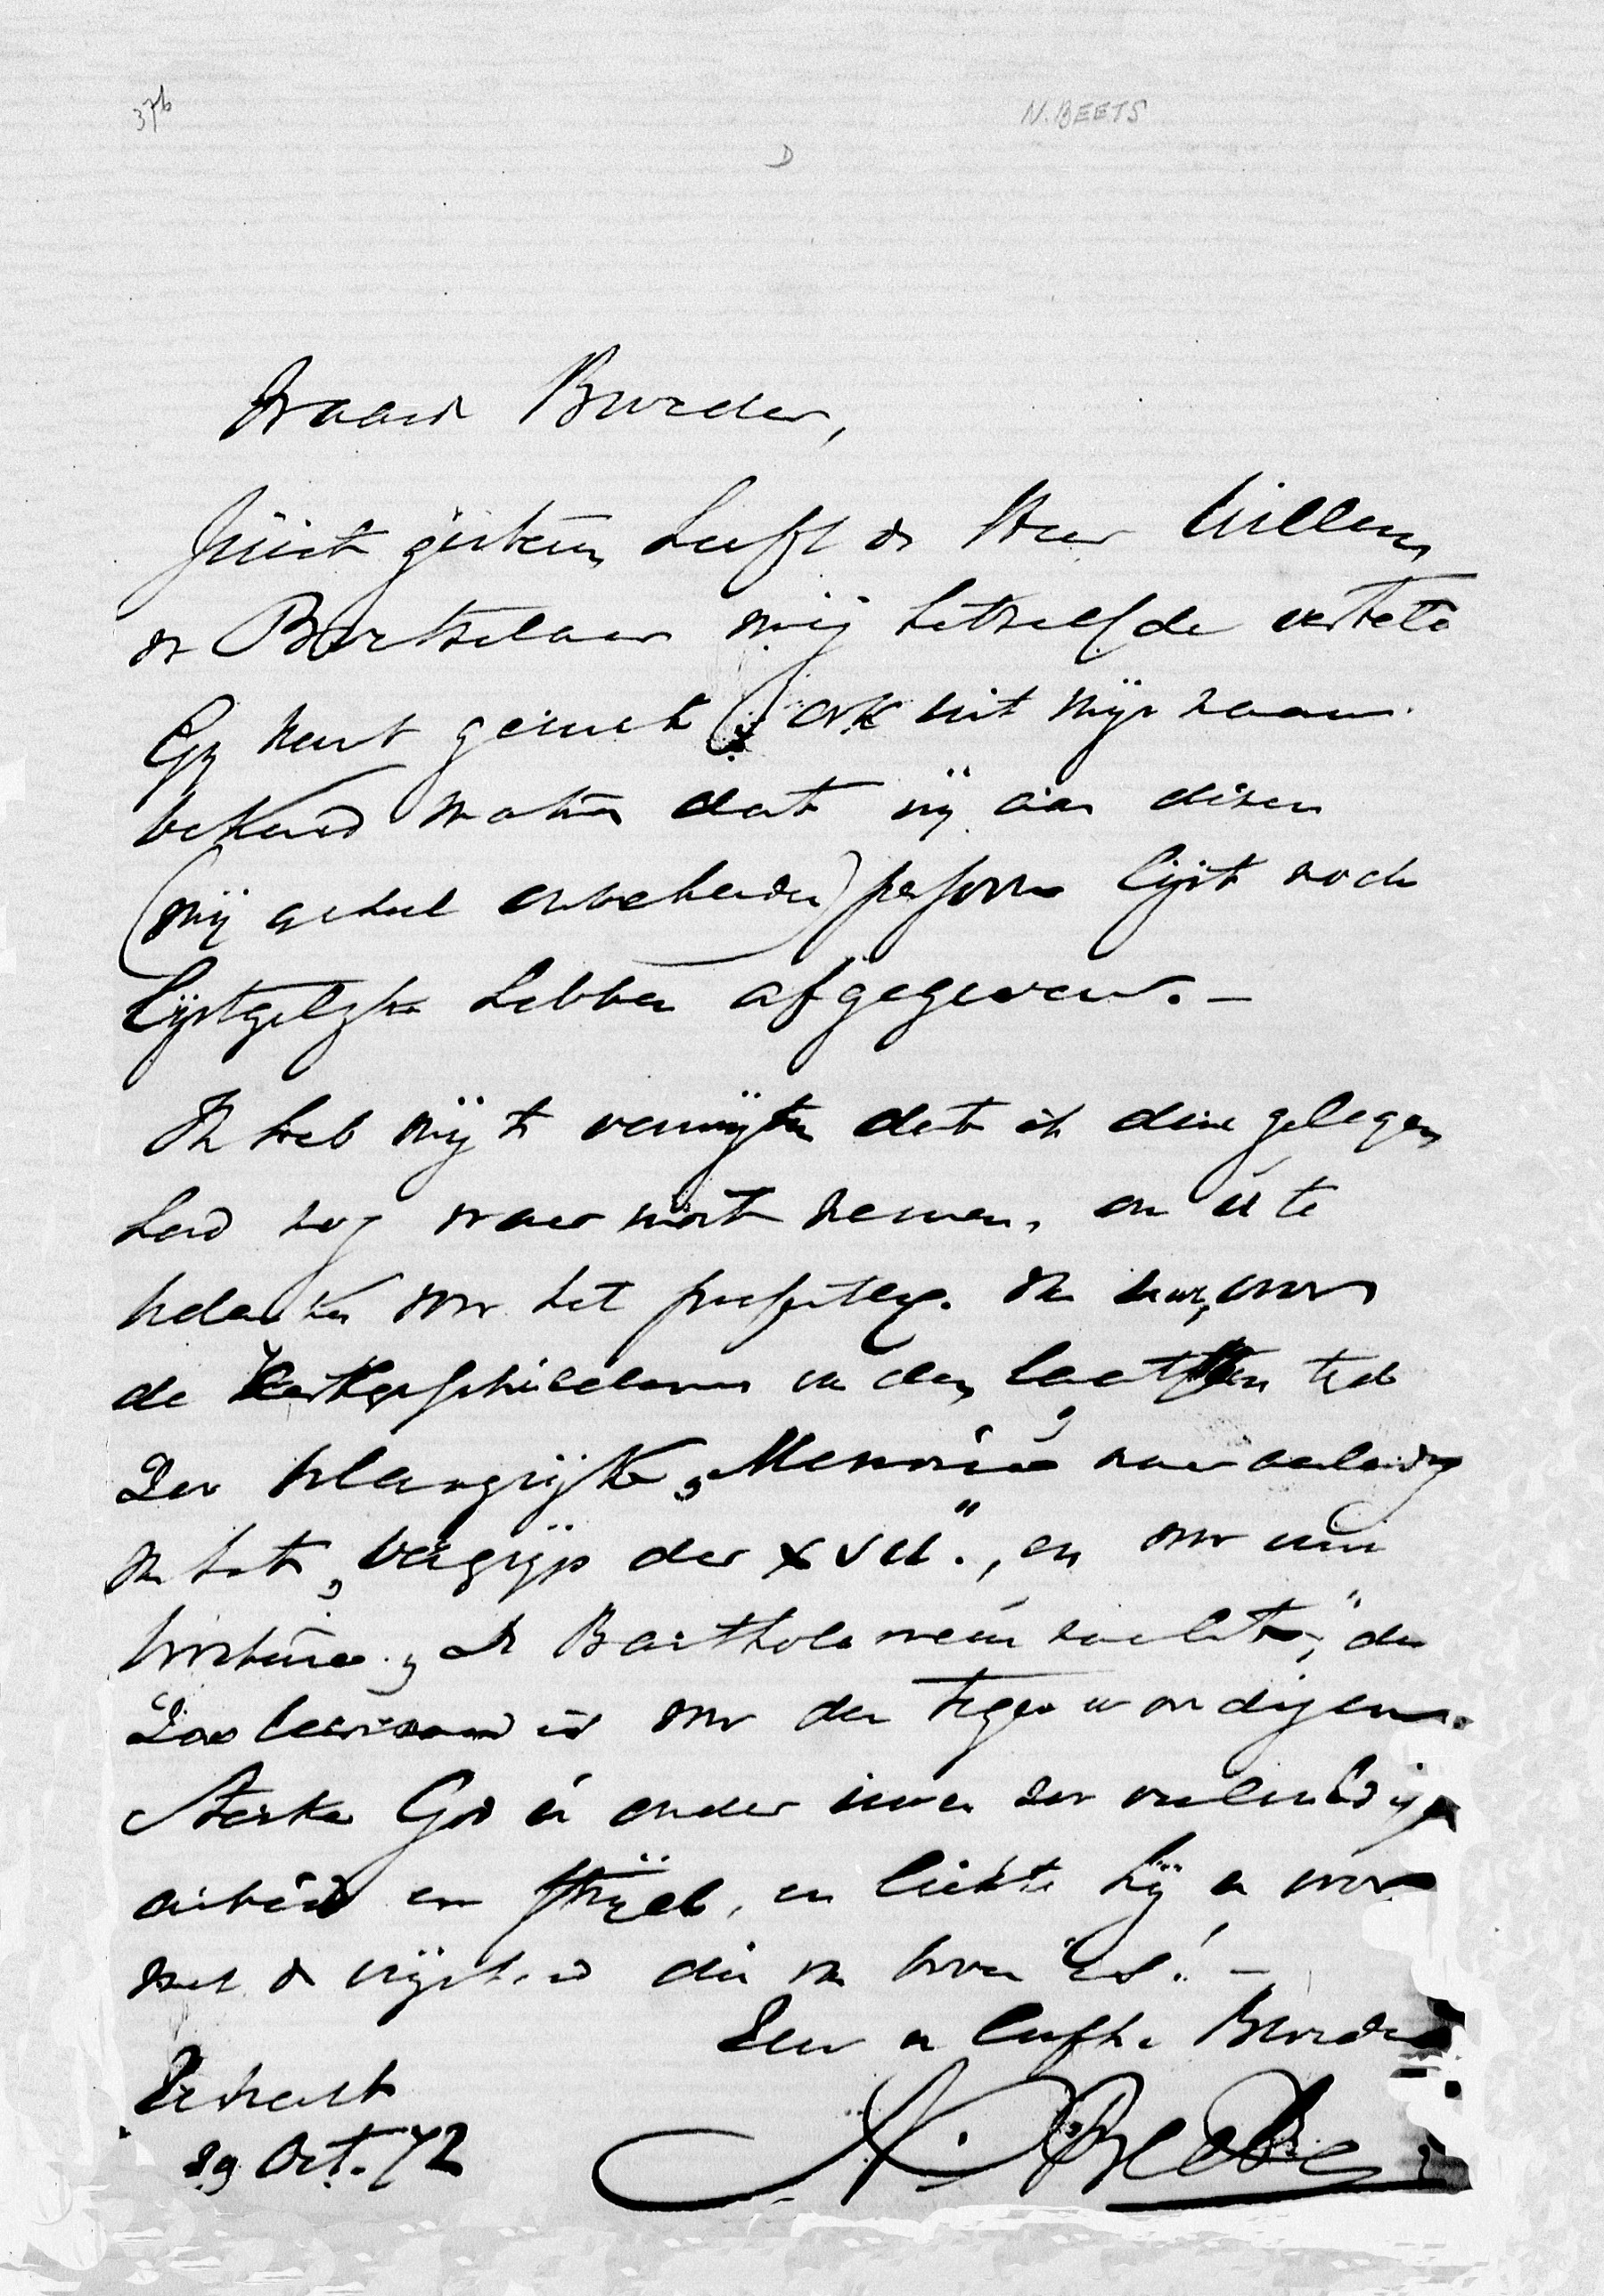 37b
N. BEETS
Waarde Broeder,
Juist gisteren heeft de Heer Willem
de Bortselaar mij hetzelfde verteld
Gij kunt gerust ook uit mijn naam
bekend maken dat wij aan dezen
(mij geheel onbekenden) persoon lijst noch
lijstgelijke hebben afgegeven. –
Ik heb mij te verwijten dat ik deze gelegen
heid nog waar moet nemen, om U te
bedanken voor het present ex. van uw, voor
de in den laatsten tijd
zeer belangrijke „Memorie naar aanleiding
van het „Vergrijp der XVII.", en voor uwe
„De Bartholomeüsnacht," die
zoo leerzaam is voor den tegenwoordigen.
Sterke God U onder uwen zeer veelvuldigen
arbeid en strijd, en lichte Hij U voor
met de wijsheid die van boven is! –
Uw u liefh. Broeder
Utrecht
29 Oct. 72
N. Beets